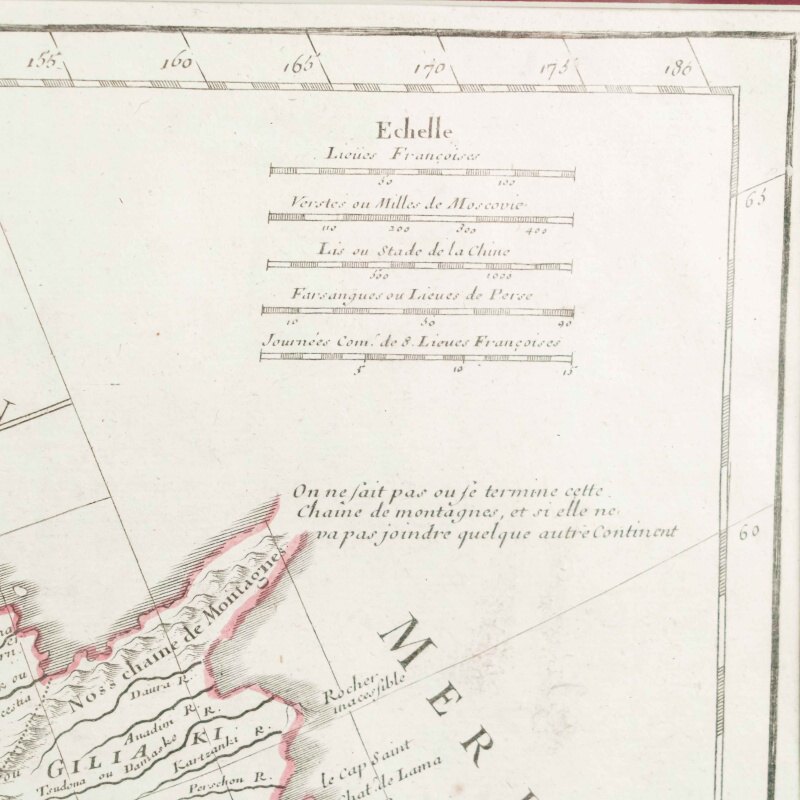 155 160 165 170 175 180
Echelle
Lieües Françoises
50 100
Verstes ou Milles de Moscovie
110 200 300 400
Lis ou Stade de la Chine
500 1000
Farsangues ou Lieues de Perse
10 50 90
Journées Com.^s de 8. Lieues Françoises
5 10 15
65
On ne sait pas ou se termine cette
Chaine de montagnes, et si elle ne
va pas joindre quelque autre Continent
60
Noss chaine de Montagnes
MER
Daura R.
Rocher
inacessible
Anadim R.
R.
GILIAKI
Tsudona ou Damasko
Kartzanki R.
Perschon R.
le Cap Saint
Chat. de Lama
ou